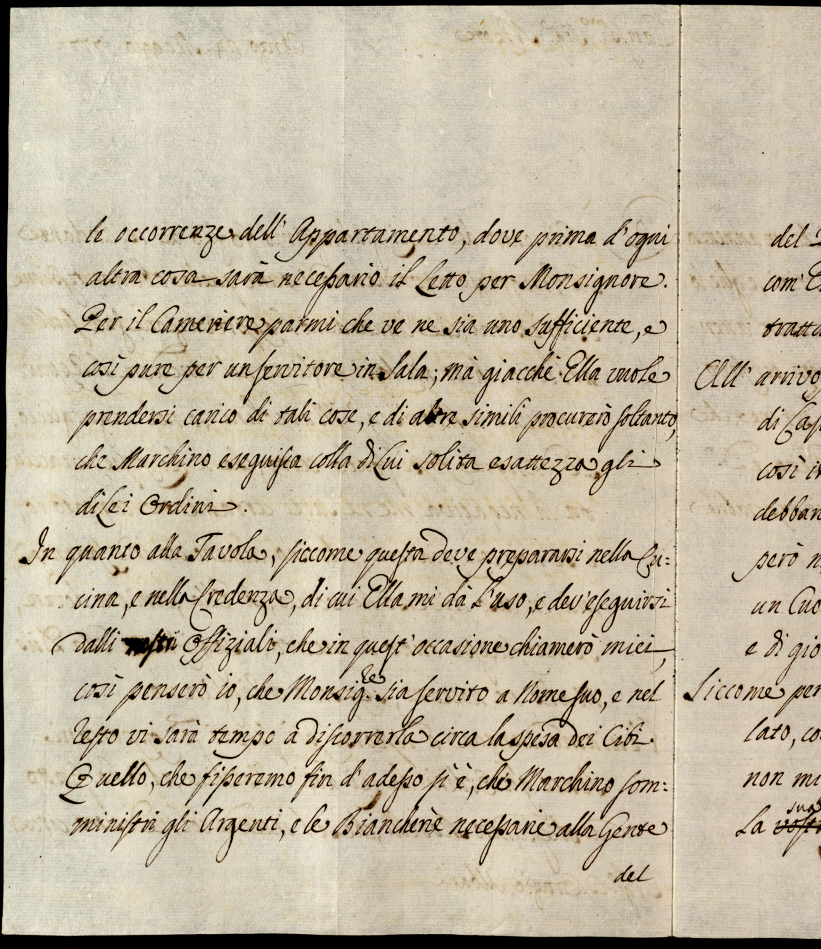 le occorrenze dell' Appartamento, dove prima d'ogni
altra cosa sarà necessario il Letto per Monsignore.
Per il Cameriere parmi che ve ne sia uno sufficiente, e
così pure per un servitore in Sala; mà giacchè Ella vuole
prendersi carico di tali cose, e di altre simili procurerò soltanto,
che Marchino eseguisca colla di Lui solita esattezza gli
di Lei Ordini.
In quanto alla Tavola, siccome questa deve prepararsi nella Cu=
cina, e nella Credenza, di cui Ella mi dà l'uso, e dev'eseguirsi
dalli Offiziali, che in quest'occasione chiamerò miei,
così penserò io, che Monsig.re sia servito a Nome suo, e nel
resto vi sarà tempo a discorrerla circa la spesa dei Cibi.
Quello, che fisseremo fin d'adesso si è, che Marchino som=
ministri gli Argenti, e le Biancherie necessarie alla Gente
del
del
com'
tratta
All' arrivo
di
così
debban
però
un
e di
Siccome per
lato,
non
la sua